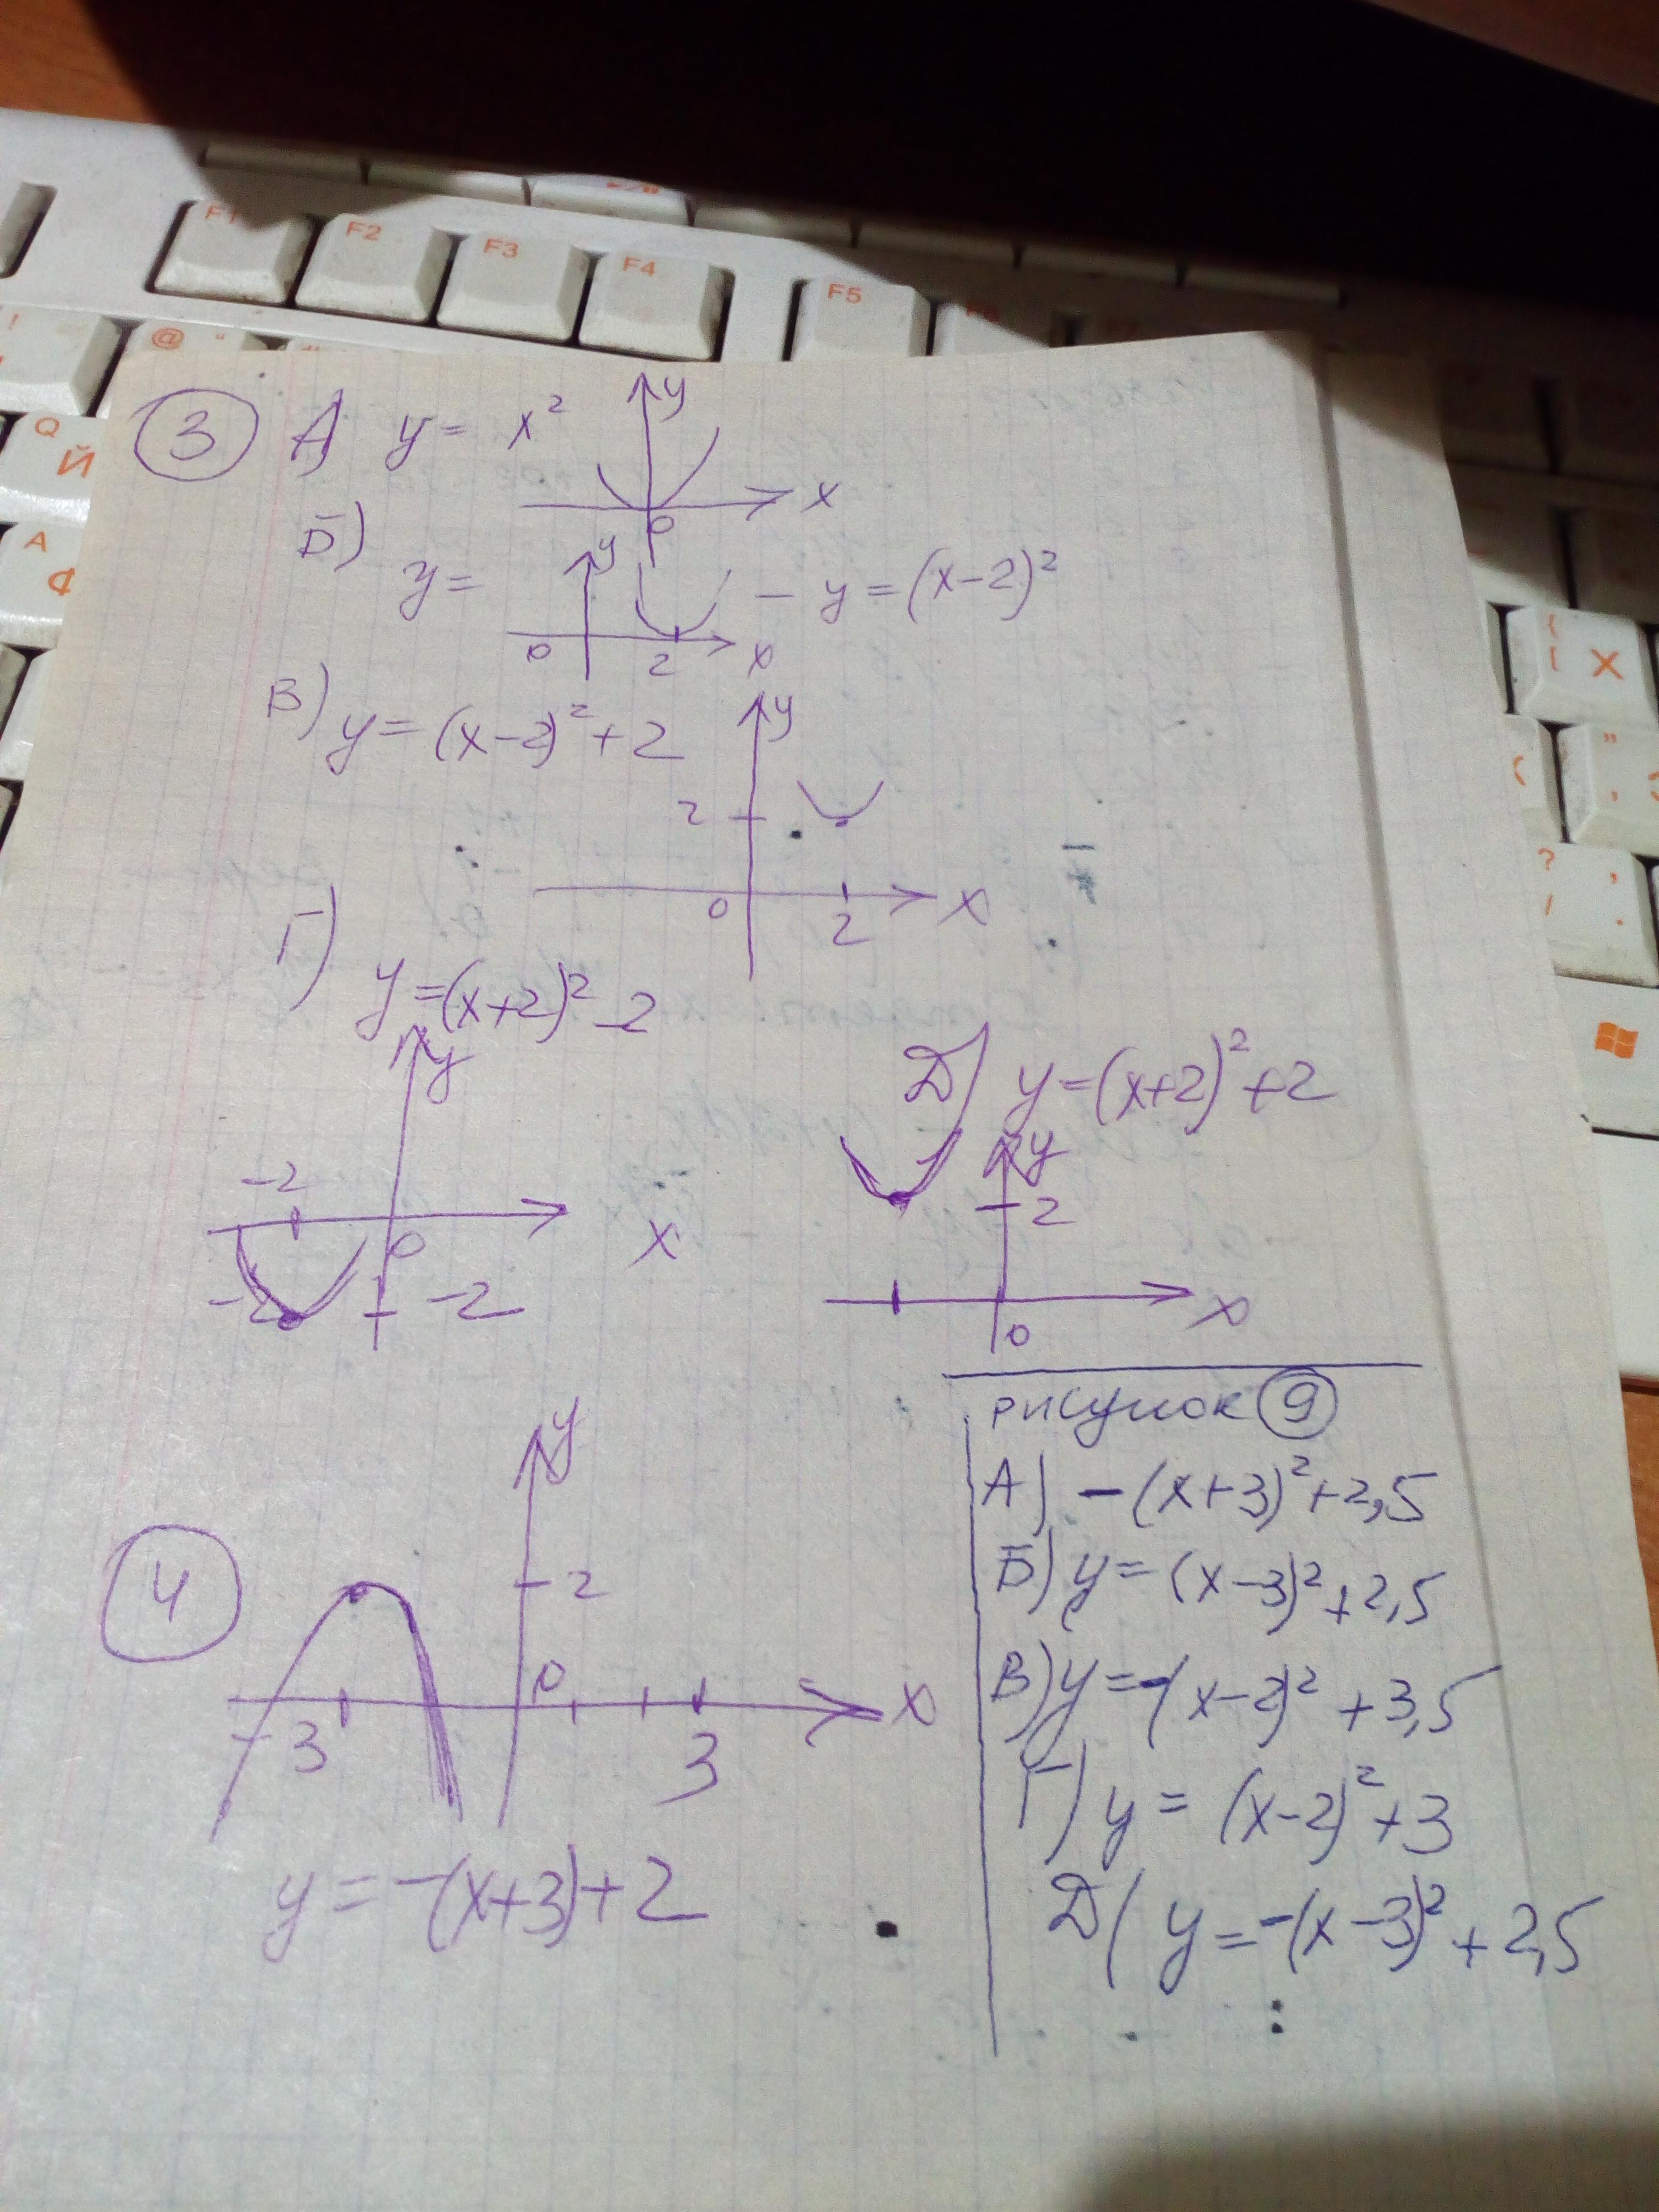 F1 F2 F3 F4 F5 F6
@ "
!
Q Й
A Ф
{ [ Х
" ,
? , / .
3 А) y = x²
y
x
0
Б) y =
y
0 2 x
– y = (x–2)²
В) y = (x–2)² + 2
y
2
0 2 x
Г) y = (x+2)² – 2
y
–2
0 x
–2 –2
Д) y = (x+2)² + 2
y
2
0 x
4
y
2
0 x
–3 3
y = –(x+3)+2
рисунок 9
А) –(x+3)²+2,5
Б) y = (x–3)²+2,5
В) y = –(x–2)² + 3,5
Г) y = (x–2)² + 3
Д) y = –(x–3)² + 2,5